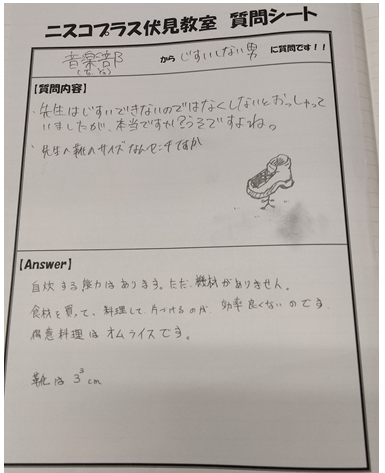 ニスコプラス伏見教室 質問シート
音楽部 から じすいしない男 に質問です！！
【質問内容】
・先生はじすいできないのではなくしないとおっしゃって
いましたが、本当ですか？うそですよね。
・先生の靴のサイズなんセンチですか
【Answer】
自炊する能力はあります。ただ、機材がありません。
食材を買って、料理して、片づけるのが、効率良くないのです。
得意料理はオムライスです。
靴は 3³cm